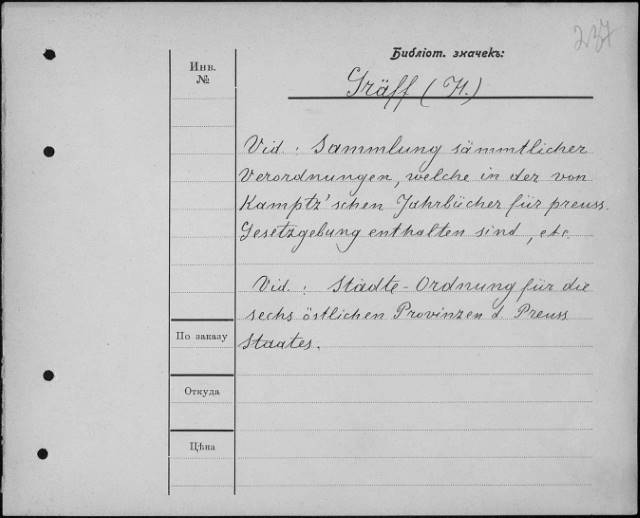 237
Библіот. значекъ:
Инв.
№
Gräff (H.)
Vid: Sammlung sämmtlicher
Verordnungen, welche in der von
Kamptz'schen Jahrbücher für preuss.
Gesetzgebung enthalten sind, etc.
Vid: Städte-Ordnung für die
sechs östlichen Provinzen d. Preuss
Staates.
По заказу
Откуда
Цѣна